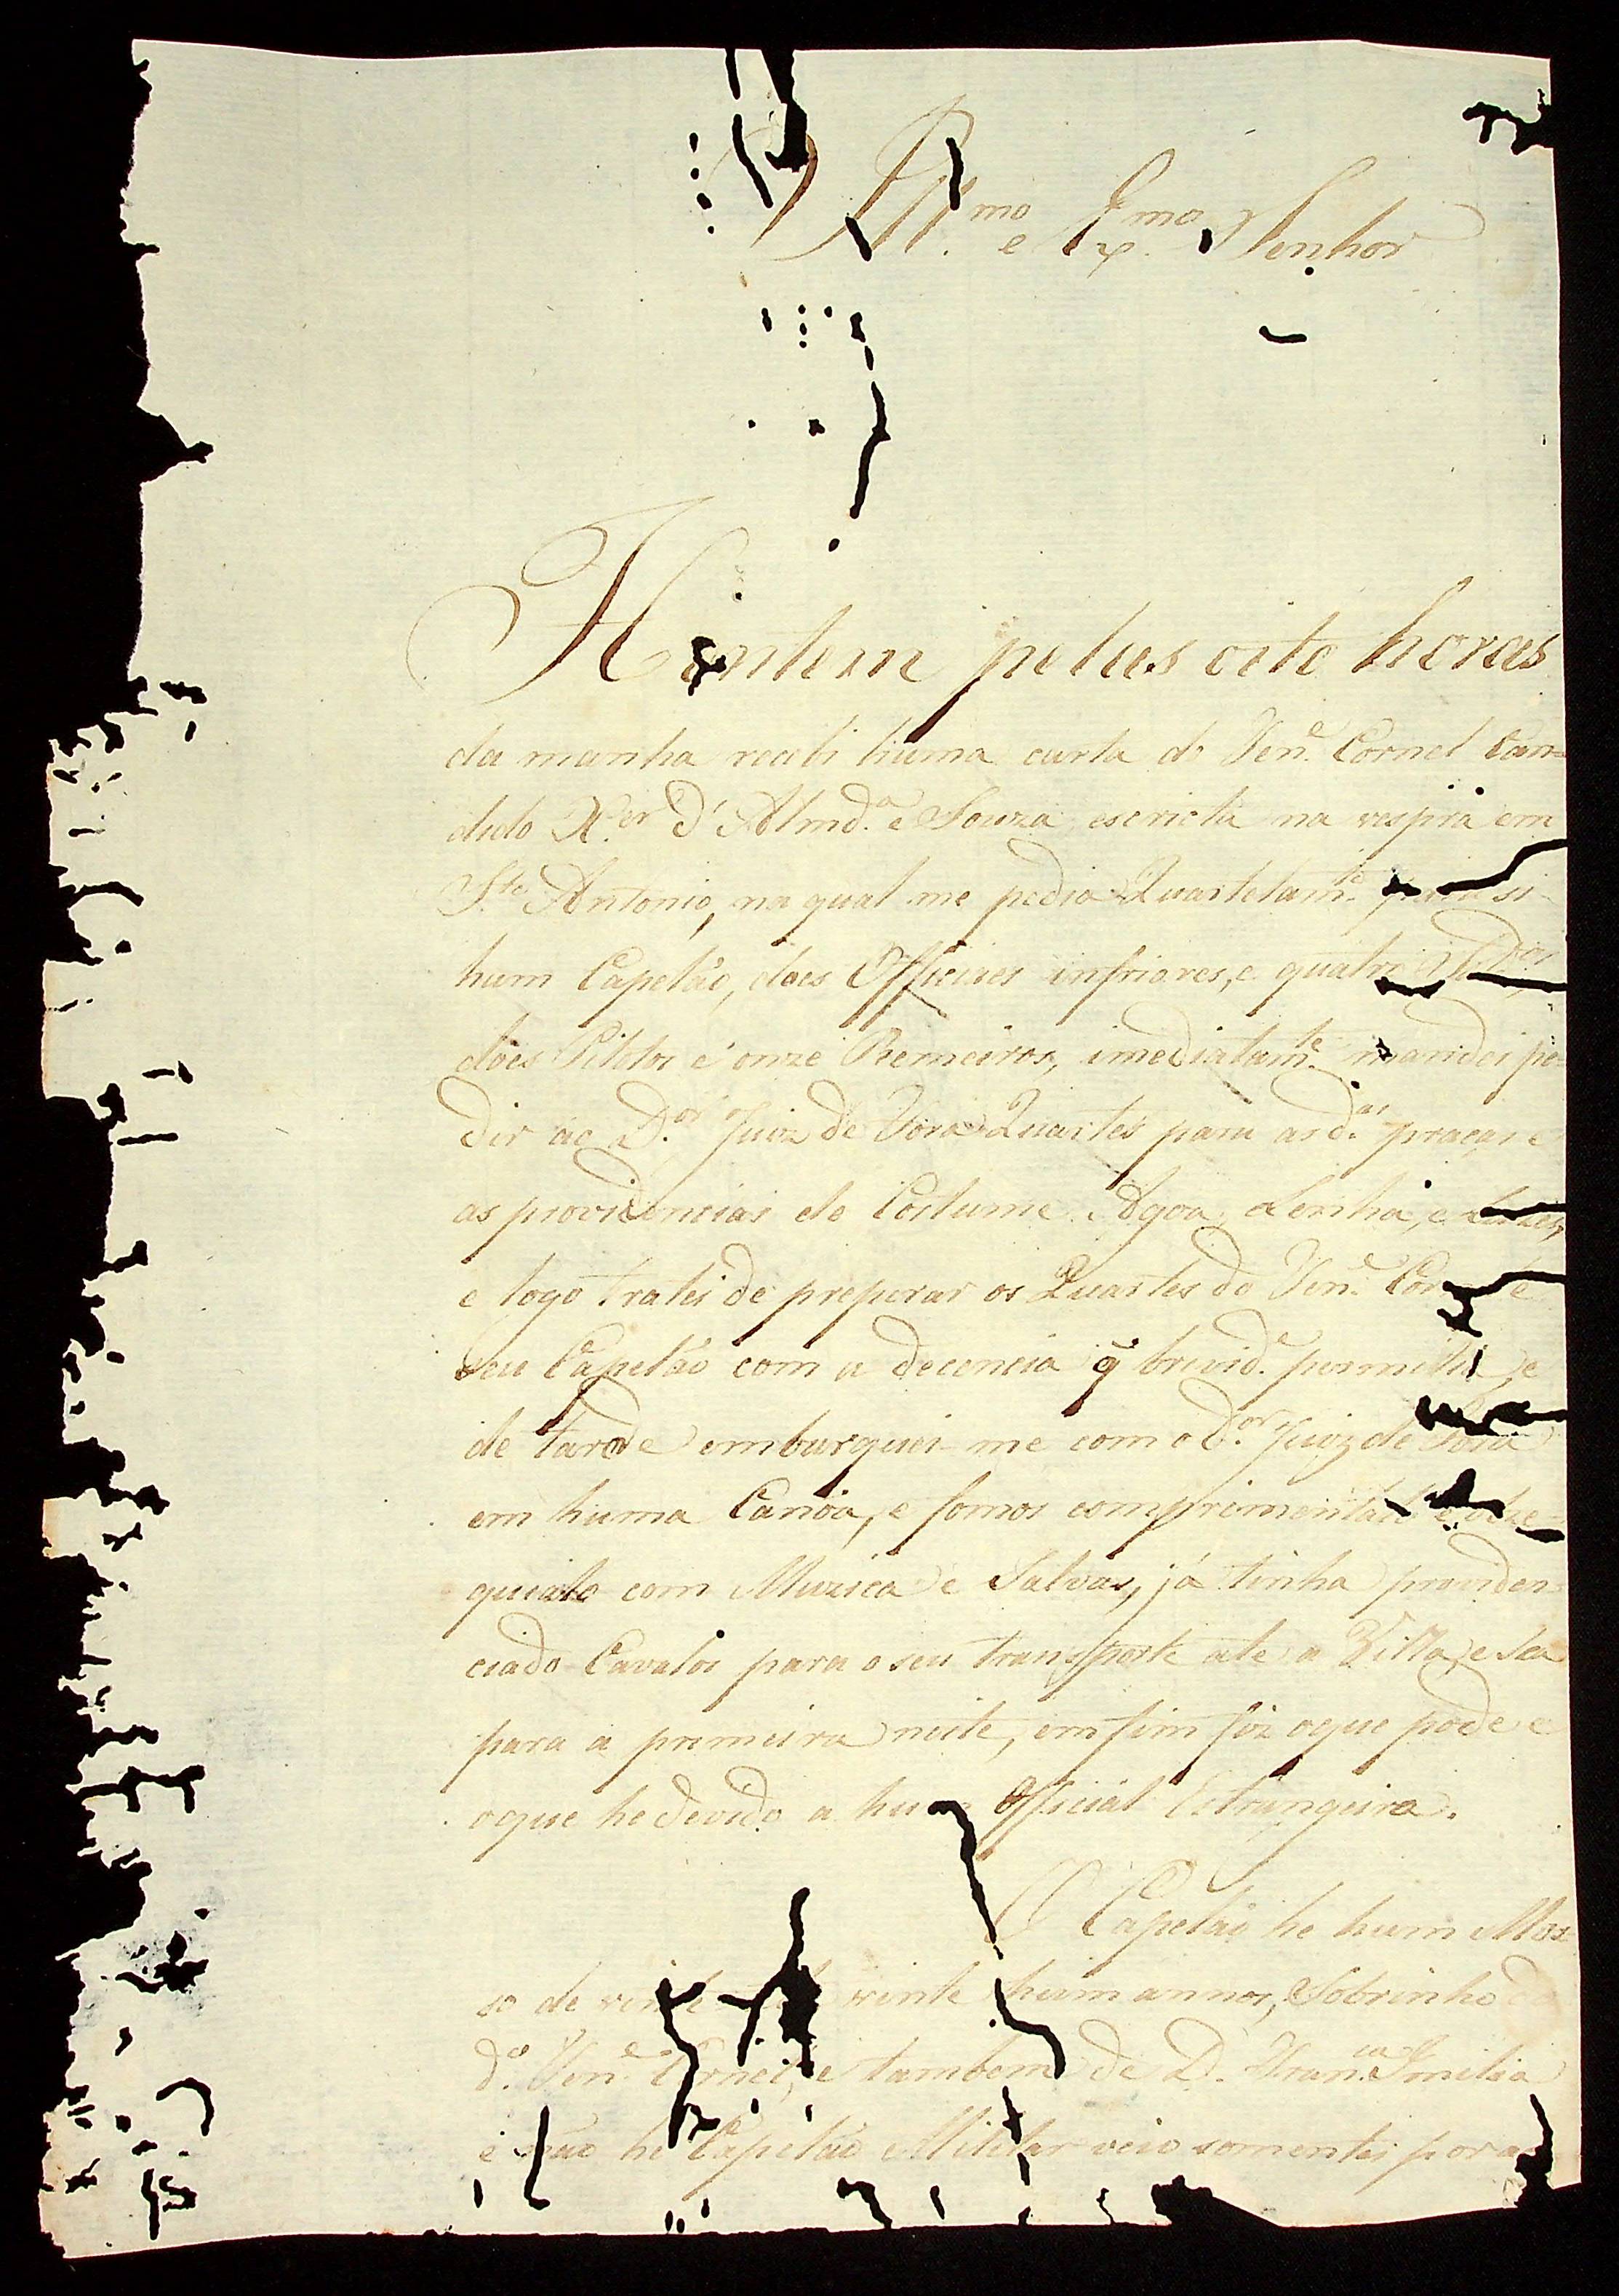 Ill.mo e Ex.mo Senhor
Hontem pelas oito horas
da manha recebi huma carta do Ten.e Cornel Can=
dido X.er d'Almd.a e Souza escricta na vespra em
S.to Antonio, na qual me pedia Quartelam.to para si
hum Capelão, does Officiaes infriores, e quatro
does Pilotos e onze Remeiros, imediatam.te mandei pe=
dir ao D.or Juiz de Fora Quarteis para as d.as praças e
as providencias do Costume Agoa, Lenha, e Luzes,
e logo tratei de preparar os Quarteis do Ten.e Cor e
seu Capelão com a decencia q̃ brevid.e permitia, e
de tarde emburquei-me com o D.or Juiz de Fora
em huma Canôa, e fomos comprimentalo e obze=
quialo com Muzica e Salvas, já tinha providen=
ciado Cavalos para o seu transporte ate a Villa, e Sea
para a premeira noite, em fim fiz o que pode e
o que he devido a hum Official Estrangeiro.
O Capelão he hum Mos=
so de vinte vinte hum annos, Sobrinho do
d.o Ten.e Cornel, e tambem de D. Fran.ca Emilia
e não he Capelão Militar veio somentes por a